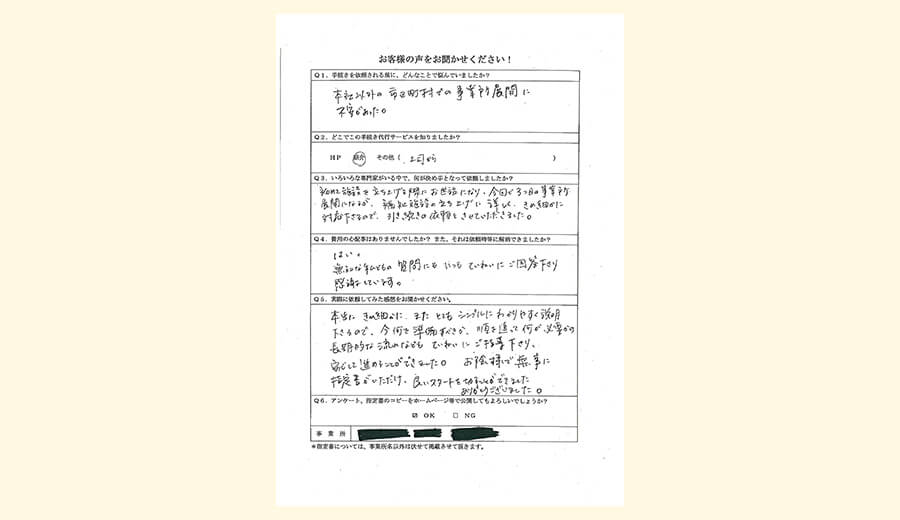 お客様の声をお聞かせください！
Q1．手続きを依頼される前に、どんなことで悩んでいましたか？
本社以外の市区町村での事業所展開に
不安があった。
Q2．どこでこの手続き代行サービスを知りましたか？
HP 紹介 その他（ 上司から ）
Q3．いろいろな専門家がいる中で、何が決め手となって依頼しましたか？
初めて施設を立ち上げる際にお世話になり、今回が3つ目の事業所
展開になるが、福祉施設の立ち上げに詳しく、きめ細かに
対応下さるので、引き続きの依頼をさせていただきました。
Q4．費用の心配事はありませんでしたか？ また、それは依頼時等に解消できましたか？
はい。
無知な私どもの質問にも いつも ていねいにご回答下さり
感謝しています。
Q5．実際に依頼してみた感想をお聞かせください。
本当に きめ細かに、また とても シンプルに わかりやすく説明
下さるので、今何を準備すべきか、順を追って何が必要かの
長期的な流れなども ていねいに ご指導下さり、
安心して進めることができました。 お陰様で無事に
指定書がいただけ、良いスタートを切ることができました
ありがとうございました。
Q6．アンケート、指定書のコピーをホームページ等で公開してもよろしいでしょうか？
☑ OK □ NG
事業所
＊指定書については、事業所名以外は伏せて掲載させて頂きます。